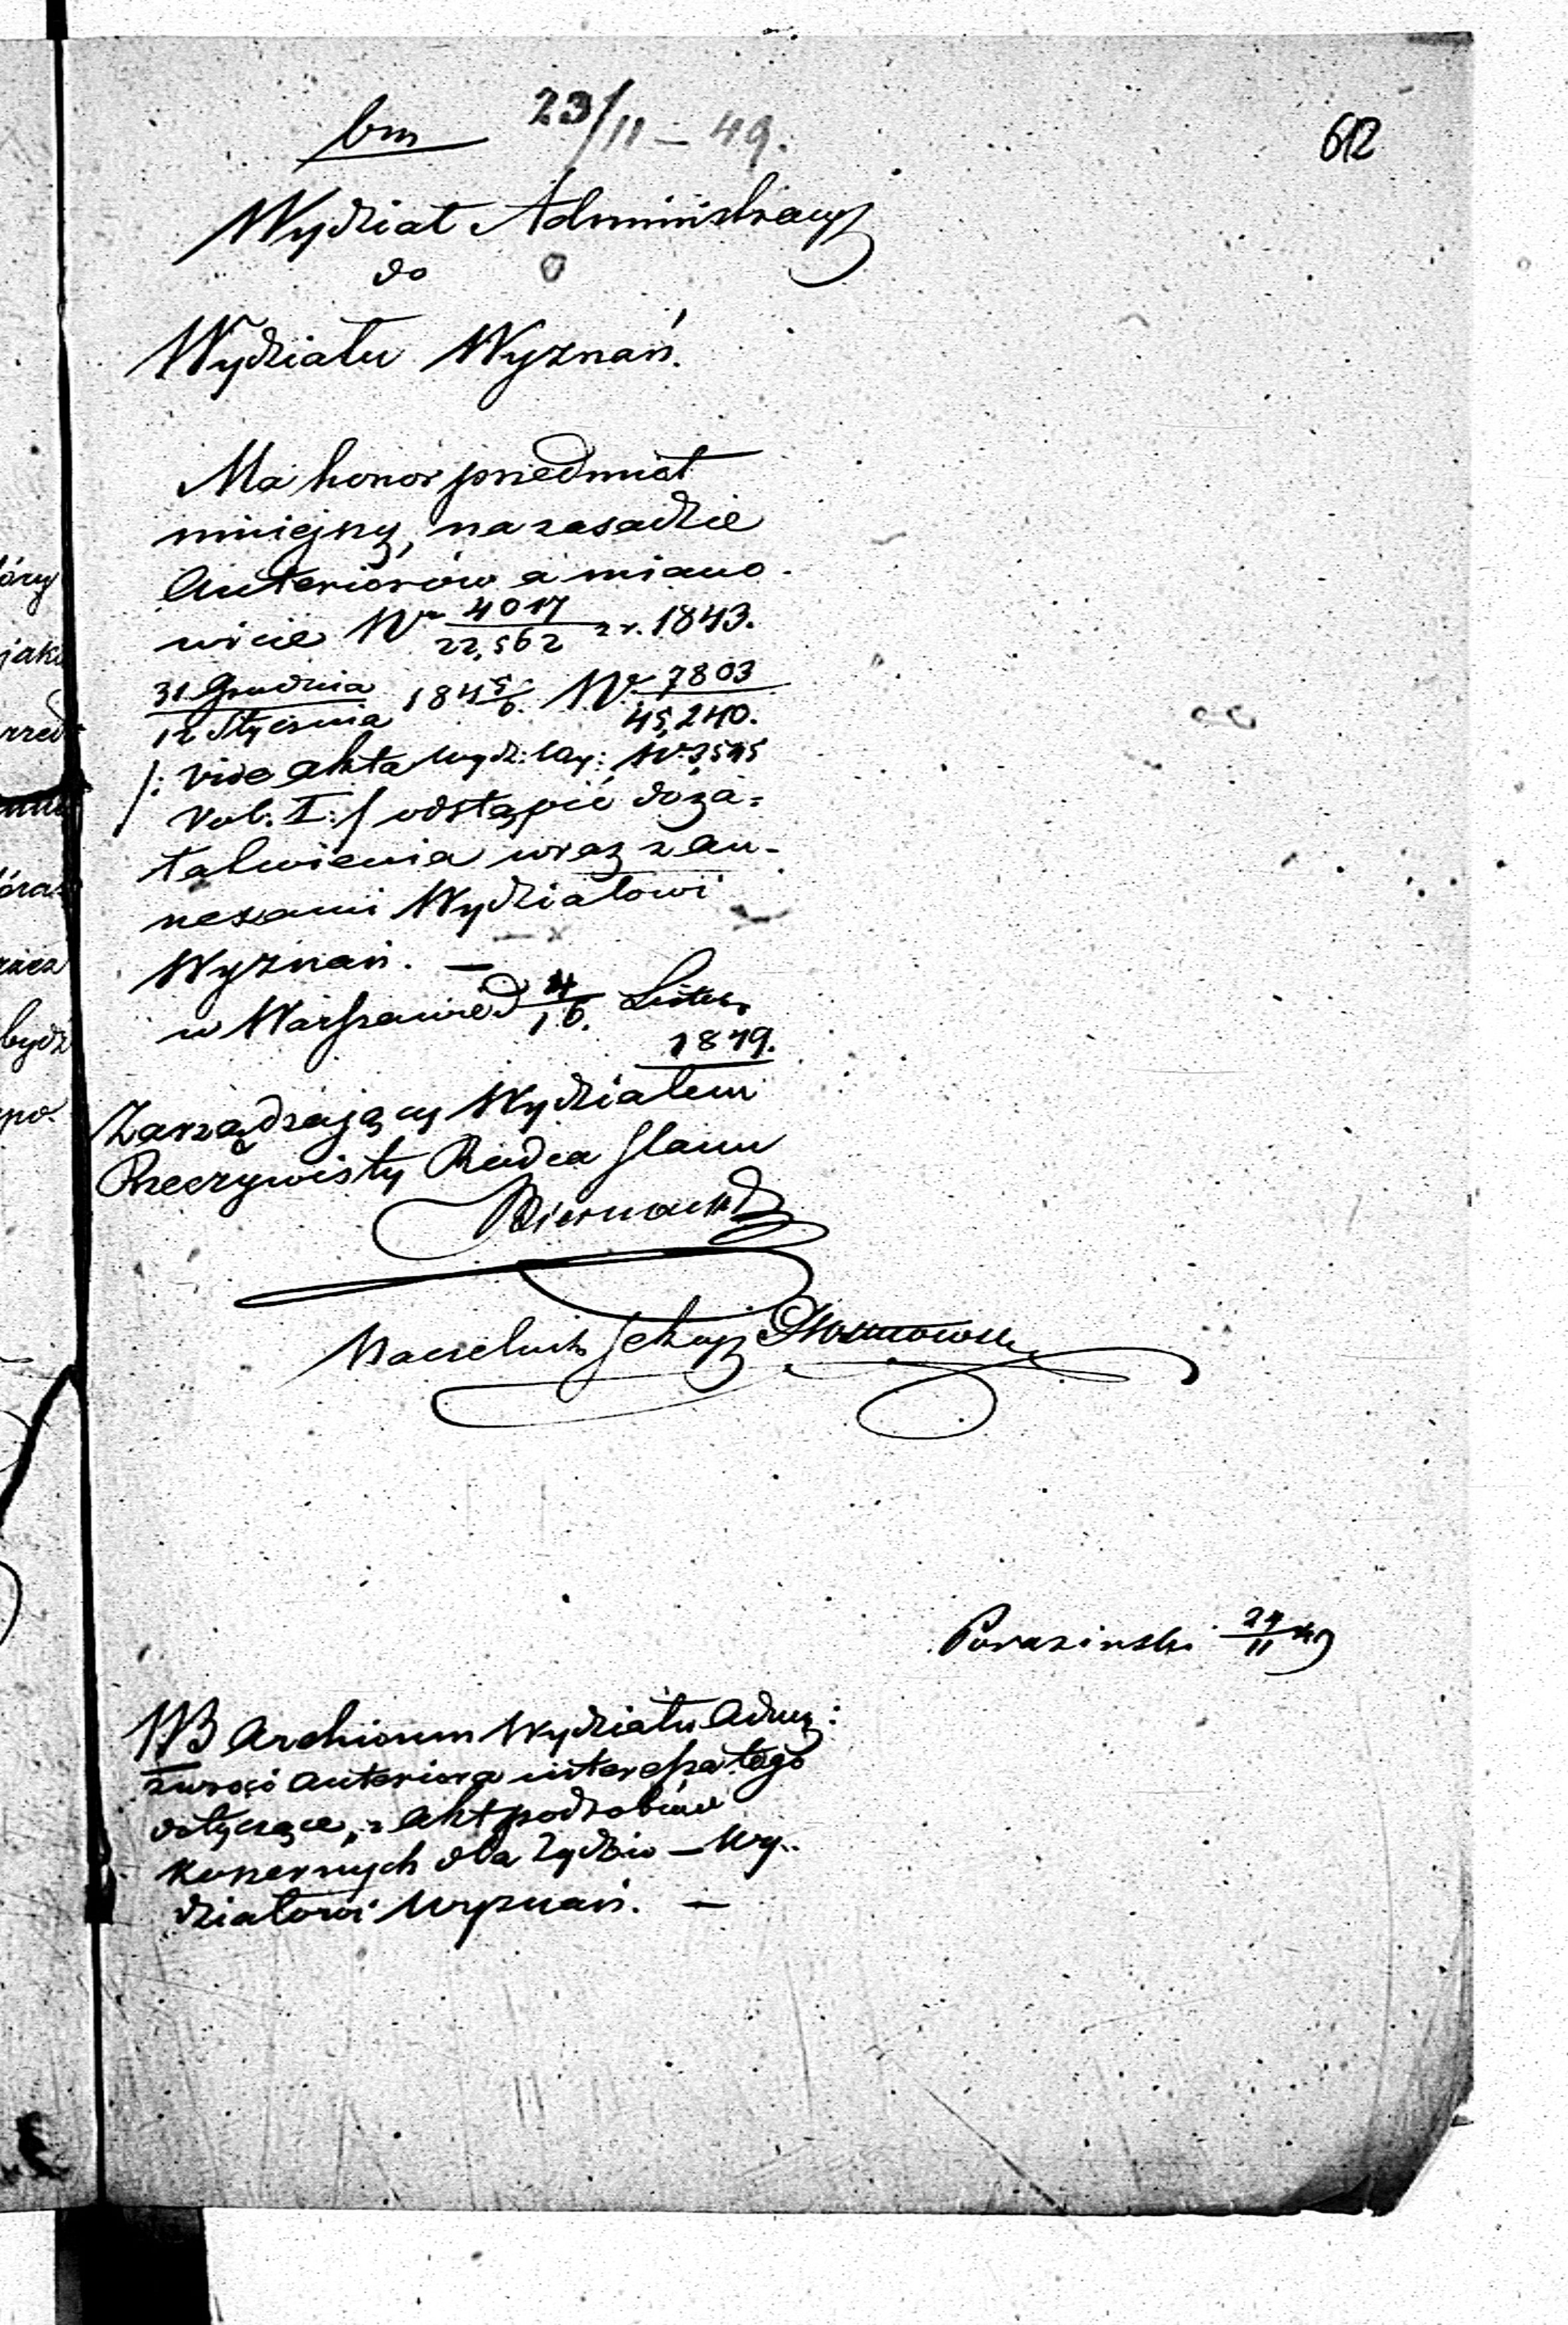 bm 23/11 – 49.
612
Wydział Administracyj
do
Wydziału Wyznań.
Ma honor przedmiot
niniejszy, na zasadzie
Anteriorów a miano-
wicie Nr 4017/22,562 z r. 1843.
31 Grudnia/12 Stycznia 1845/6. Nr 7803/45,240.
/: vide akta Wydz: Nr
Vol: I :/ odstąpić do za=
łatwienia wraz z an-
nexami Wydziałowi
Wyznań. —
w Warszawie d 4/16. Listop.
1849.
Zarządzający Wydziałem
Rzeczywisty Radca Stanu
Biernacki
Naczelnik Sekcyj
24/11 49
NB Archiwum Wydziału Adm:
zwróci anteriora interessa tego
dotyczące, z akt
koszernych dla Żydów — Wy-
działowi Wyznań. —